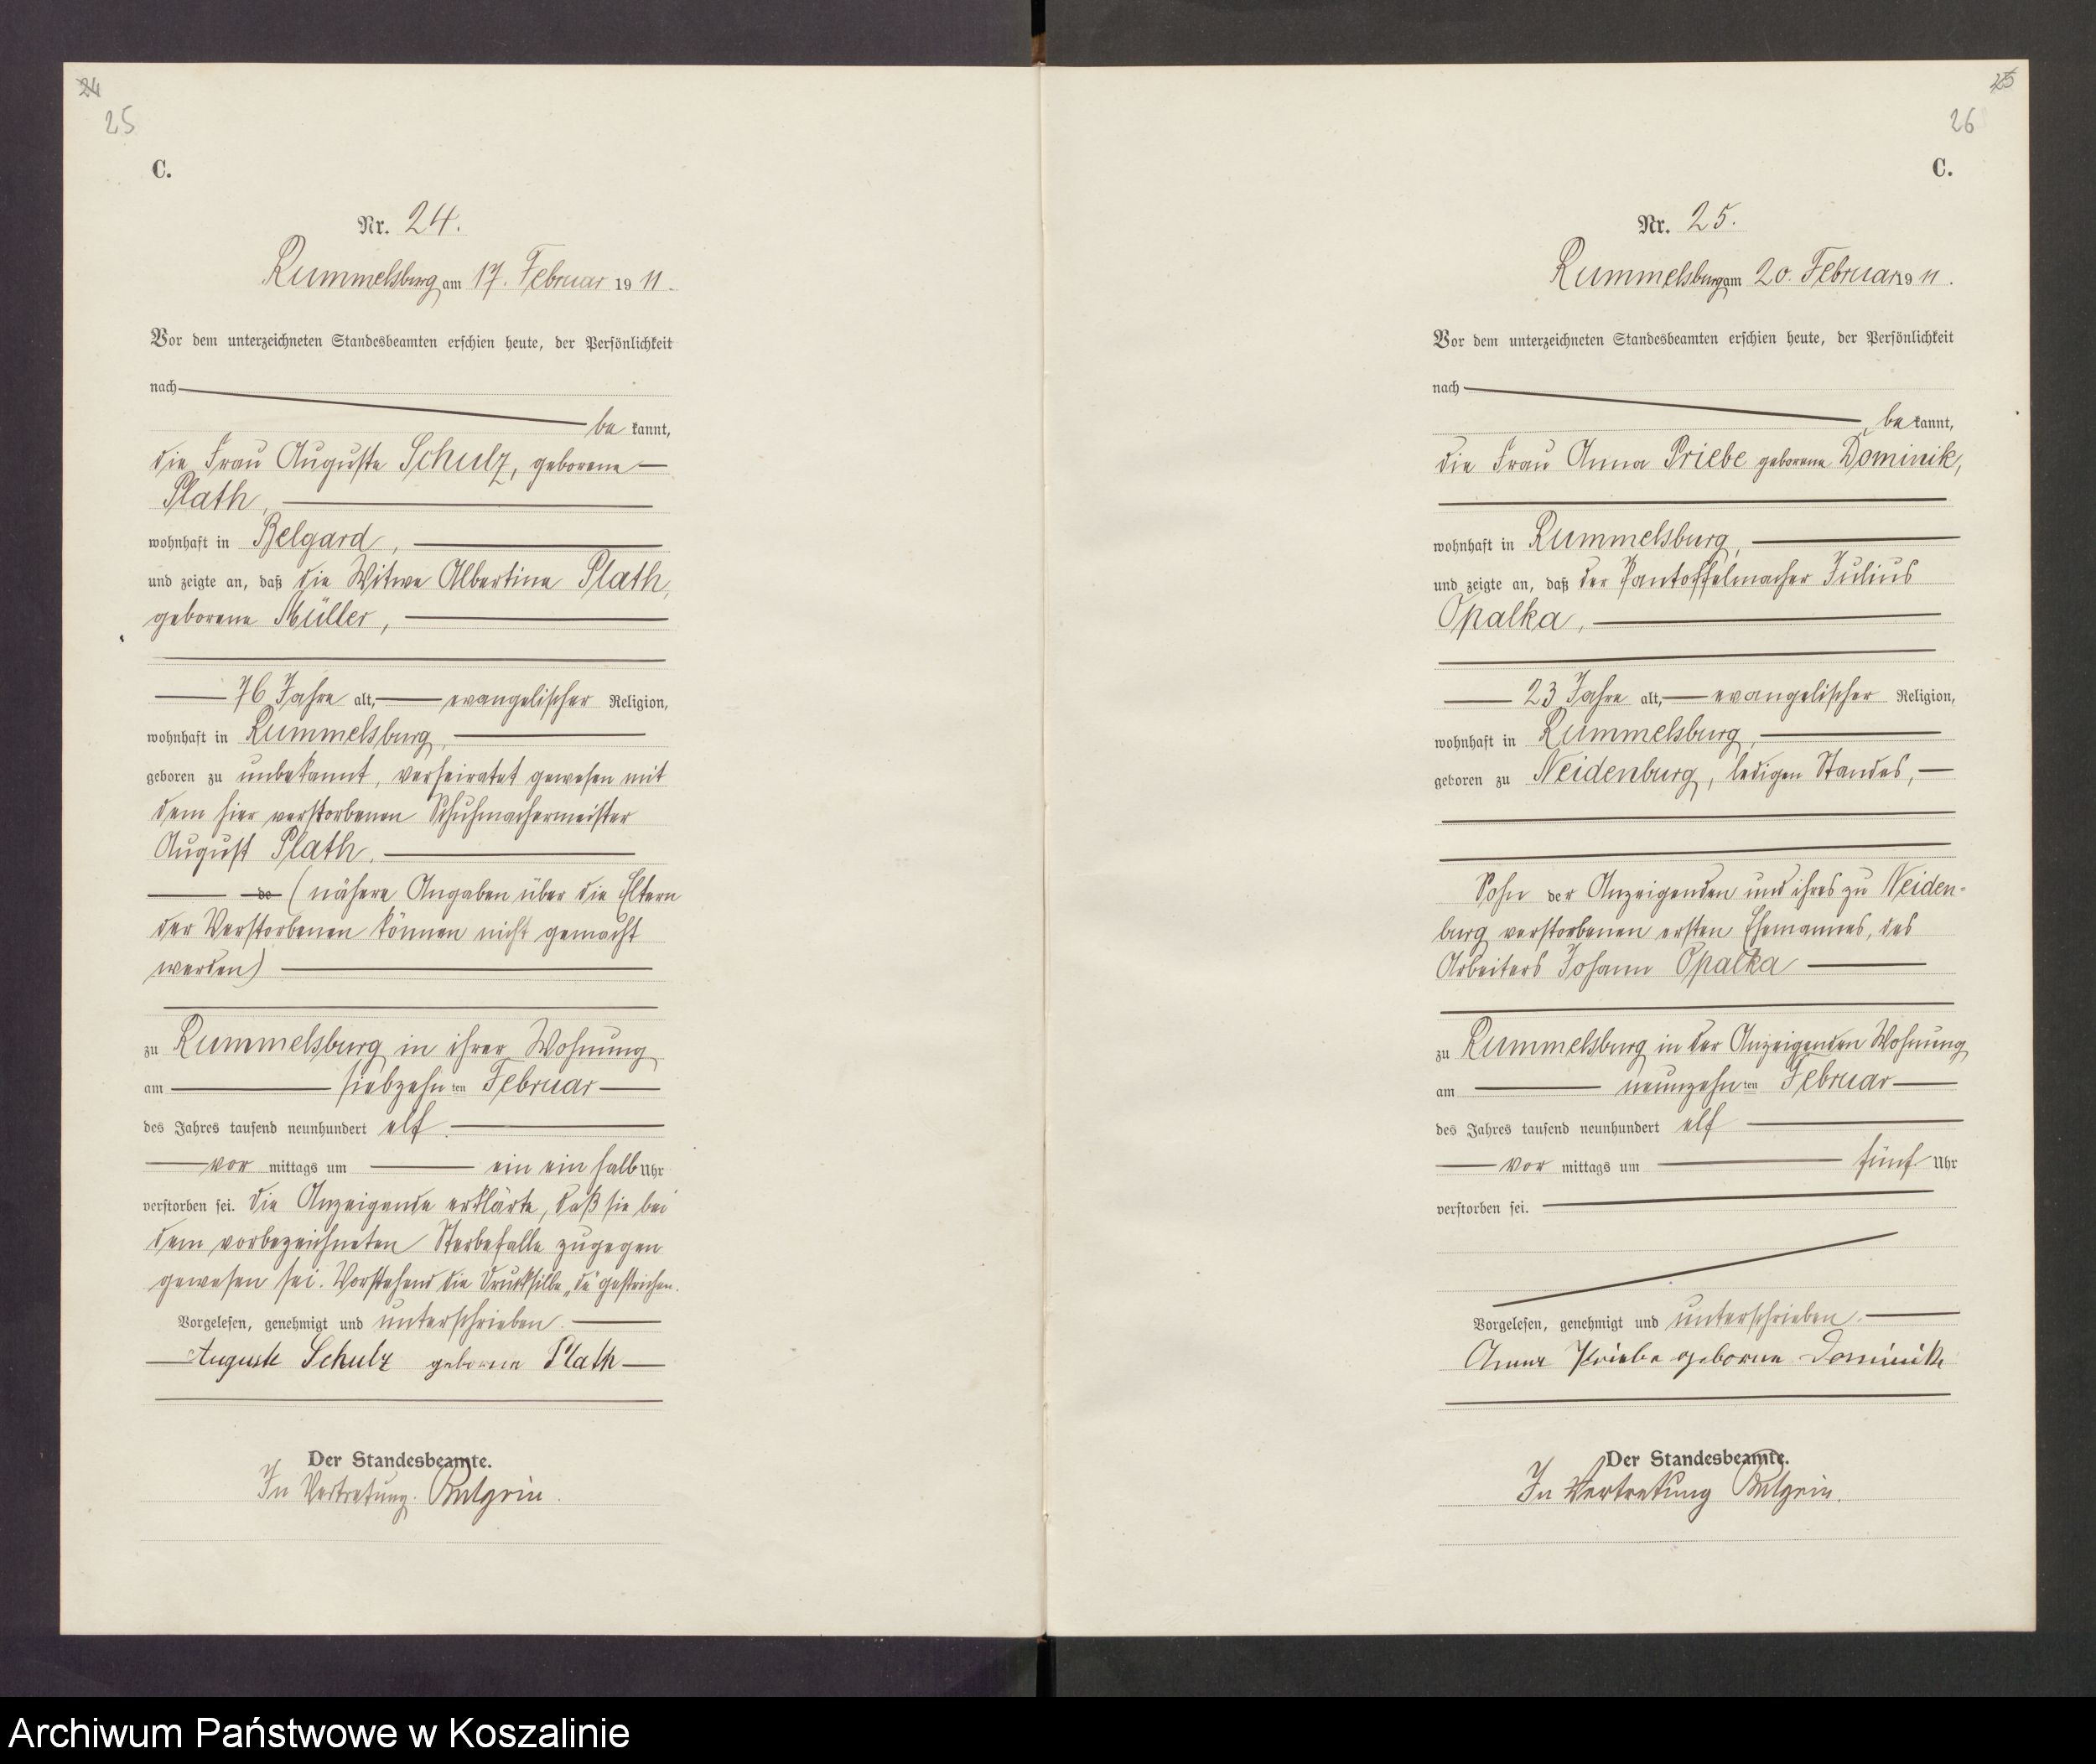 24
25
C.
Nr. 24.
Rummelsburg am 17. Februar 1911.
Vor dem unterzeichneten Standesbeamten erschien heute, der Persönlichkeit
nach
be kannt,
die Frau Auguste Schulz, geborene
Plath,
wohnhaft in Belgard,
und zeigte an, daß die Witwe Albertine Plath,
geborene Müller,
76 Jahre alt, evangelischer Religion,
wohnhaft in Rummelsburg,
geboren zu unbekannt, verheiratet gewesen mit
dem hier verstorbenen Schuhmachermeister
August Plath.
de (nähere Angaben über die Eltern
der Verstorbenen können nicht gemacht
werden)
zu Rummelsburg in ihrer Wohnung
am siebzehnten Februar
des Jahres tausend neunhundert elf
vor mittags um ein ein halb Uhr
verstorben sei. Die Anzeigende erklärte, daß sie bei
dem vorbezeichneten Sterbefalle zugegen
gewesen sei. Vorstehend die Drucksilbe „de“ gestrichen.
Vorgelesen, genehmigt und unterschrieben.
Auguste Schulz geborne Plath
Der Standesbeamte.
In Vertretung.
25
26
C.
Nr. 25.
Rummelsburg am 20. Februar 1911.
Vor dem unterzeichneten Standesbeamten erschien heute, der Persönlichkeit
nach
be kannt,
die Frau Anna Priebe geborene Dominik,
wohnhaft in Rummelsburg,
und zeigte an, daß der Pantoffelmacher Julius
Opalka,
23 Jahre alt, evangelischer Religion,
wohnhaft in Rummelsburg,
geboren zu Neidenburg, ledigen Standes,
Sohn der Anzeigenden und ihres zu Neiden-
burg verstorbenen ersten Ehemannes, des
Arbeiters Johann Opalka
zu Rummelsburg in der Anzeigenden Wohnung
am neunzehnten Februar
des Jahres tausend neunhundert elf
vor mittags um fünf Uhr
verstorben sei.
Vorgelesen, genehmigt und unterschrieben.
Anna Priebe geborne Dominik
Der Standesbeamte.
In Vertretung
Archiwum Państwowe w Koszalinie